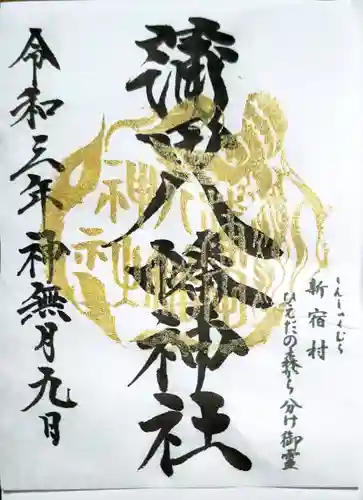 しんしゅくむら
新宿村
ひえだの森から分け御霊
蒲田八幡神社
令和三年神無月九日